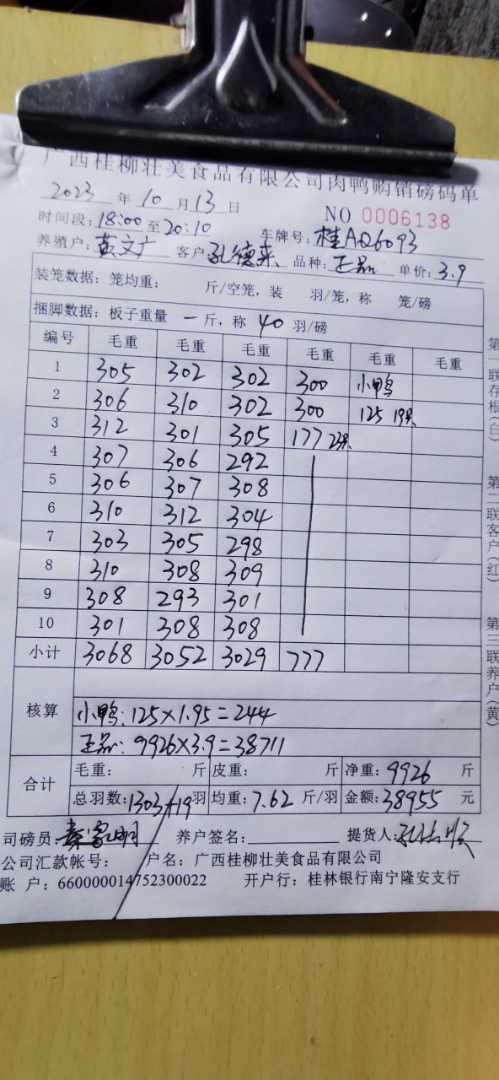 广西桂柳壮美食品有限公司肉鸭购销磅码单
2023 年 10 月 13 日 NO 0006138
时间段:18:00至20:10 车牌号:桂AQ6093
养殖户:黄文广 客户 孔德来 品种:正品 单价:3.9
装笼数据:笼均重: 斤/空笼,装 羽/笼,称 笼/磅
捆脚数据:板子重量 一 斤,称 40 羽/磅
编号 毛重 毛重 毛重 毛重 毛重 毛重
1 305 302 302 300 小鸭
2 306 310 302 300 125 19只
3 312 301 305 177 23只
4 307 306 292
5 306 307 308
6 310 312 304
7 303 305 298
8 310 308 309
9 308 293 301
10 301 308 308
小计 3068 3052 3029 777
核算
小鸭:125×1.95=244
正品:9926×3.9=38711
合计 毛重: 斤 皮重: 斤 净重:9926 斤
总羽数:1303+19羽 均重:7.62 斤/羽 金额:38955 元
司磅员: 养户签名: 提货人:
公司汇款帐号: 户名:广西桂柳壮美食品有限公司
账 户:660000014752300022 开户行:桂林银行南宁隆安支行
第一联存根(白)
第二联客户(红)
第三联养户(黄)